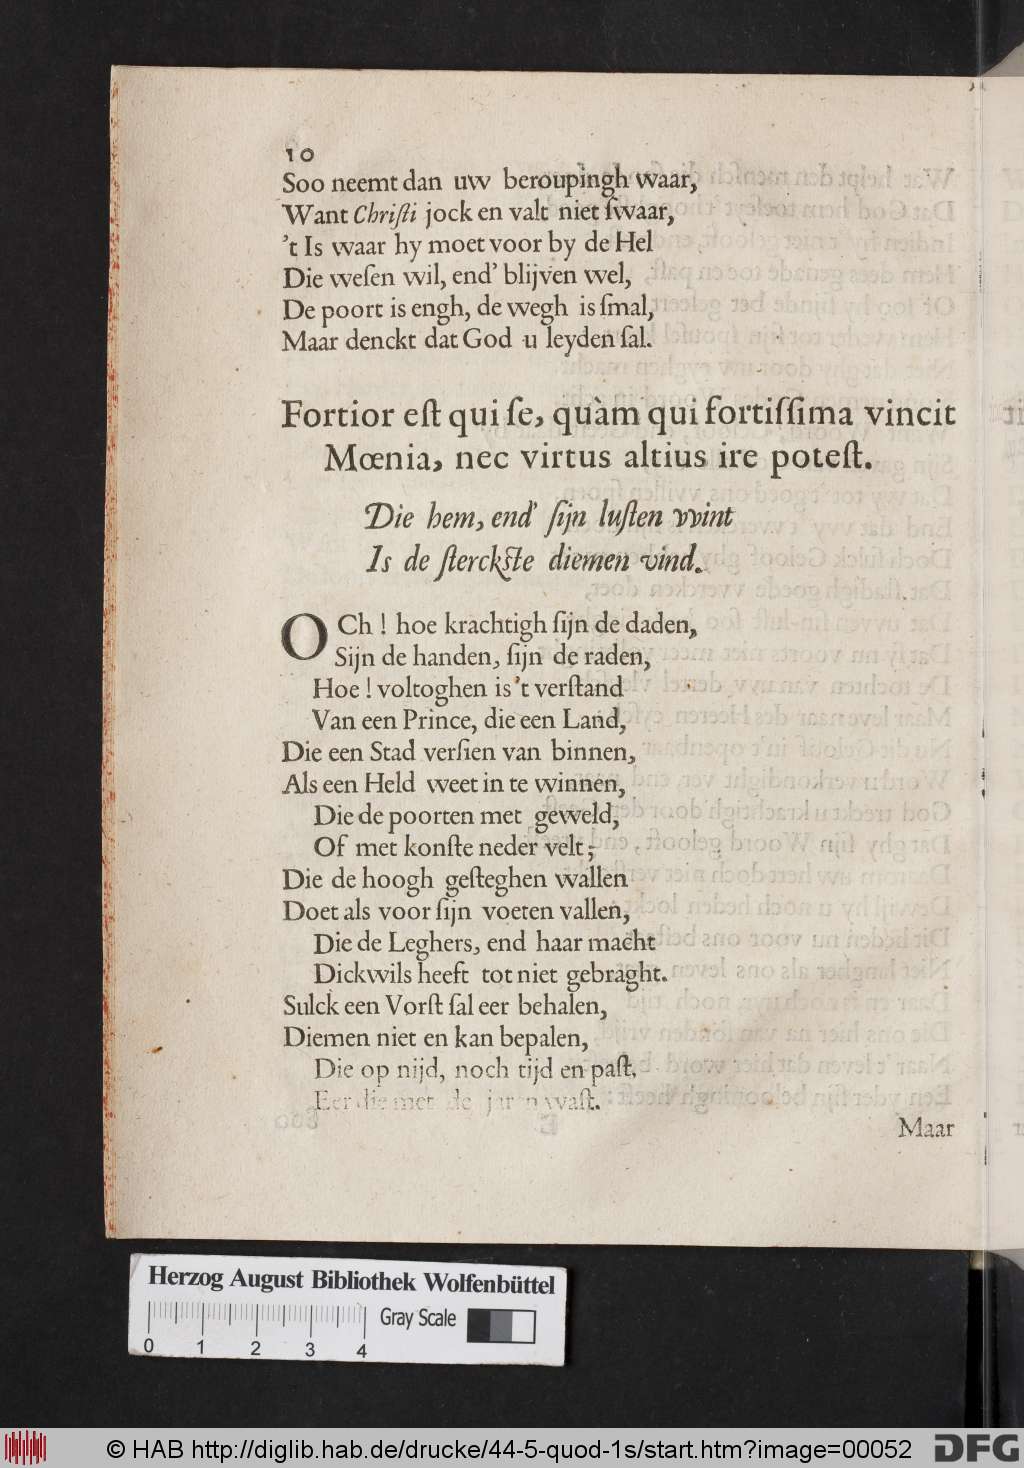 10
Soo neemt dan uw beroupingh waar,
Want Chriſti jock en valt niet ſwaar,
't Is waar hy moet voor by de Hel
Die weſen wil, end' blijven wel,
De poort is engh, de wegh is ſmal,
Maar denckt dat God u leyden ſal.
Fortior eſt qui ſe, quàm qui fortiſſima vincit
Mœnia, nec virtus altius ire poteſt.
Die hem, end' ſijn luſten vvint
Is de ſterckſte diemen vind.
OCh ! hoe krachtigh ſijn de daden,
Sijn de handen, ſijn de raden,
Hoe ! voltoghen is 't verſtand
Van een Prince, die een Land,
Die een Stad verſien van binnen,
Als een Held weet in te winnen,
Die de poorten met geweld,
Of met konſte neder velt;
Die de hoogh geſteghen wallen
Doet als voor ſijn voeten vallen,
Die de Leghers, end haar macht
Dickwils heeft tot niet gebraght.
Sulck een Vorſt ſal eer behalen,
Diemen niet en kan bepalen,
Die op nijd, noch tijd en paſt,
Eer die met de jaren waſt.
Maar
Herzog August Bibliothek Wolfenbüttel
Gray Scale
0 1 2 3 4
© HAB http://diglib.hab.de/drucke/44-5-quod-1s/start.htm?image=00052
DFG